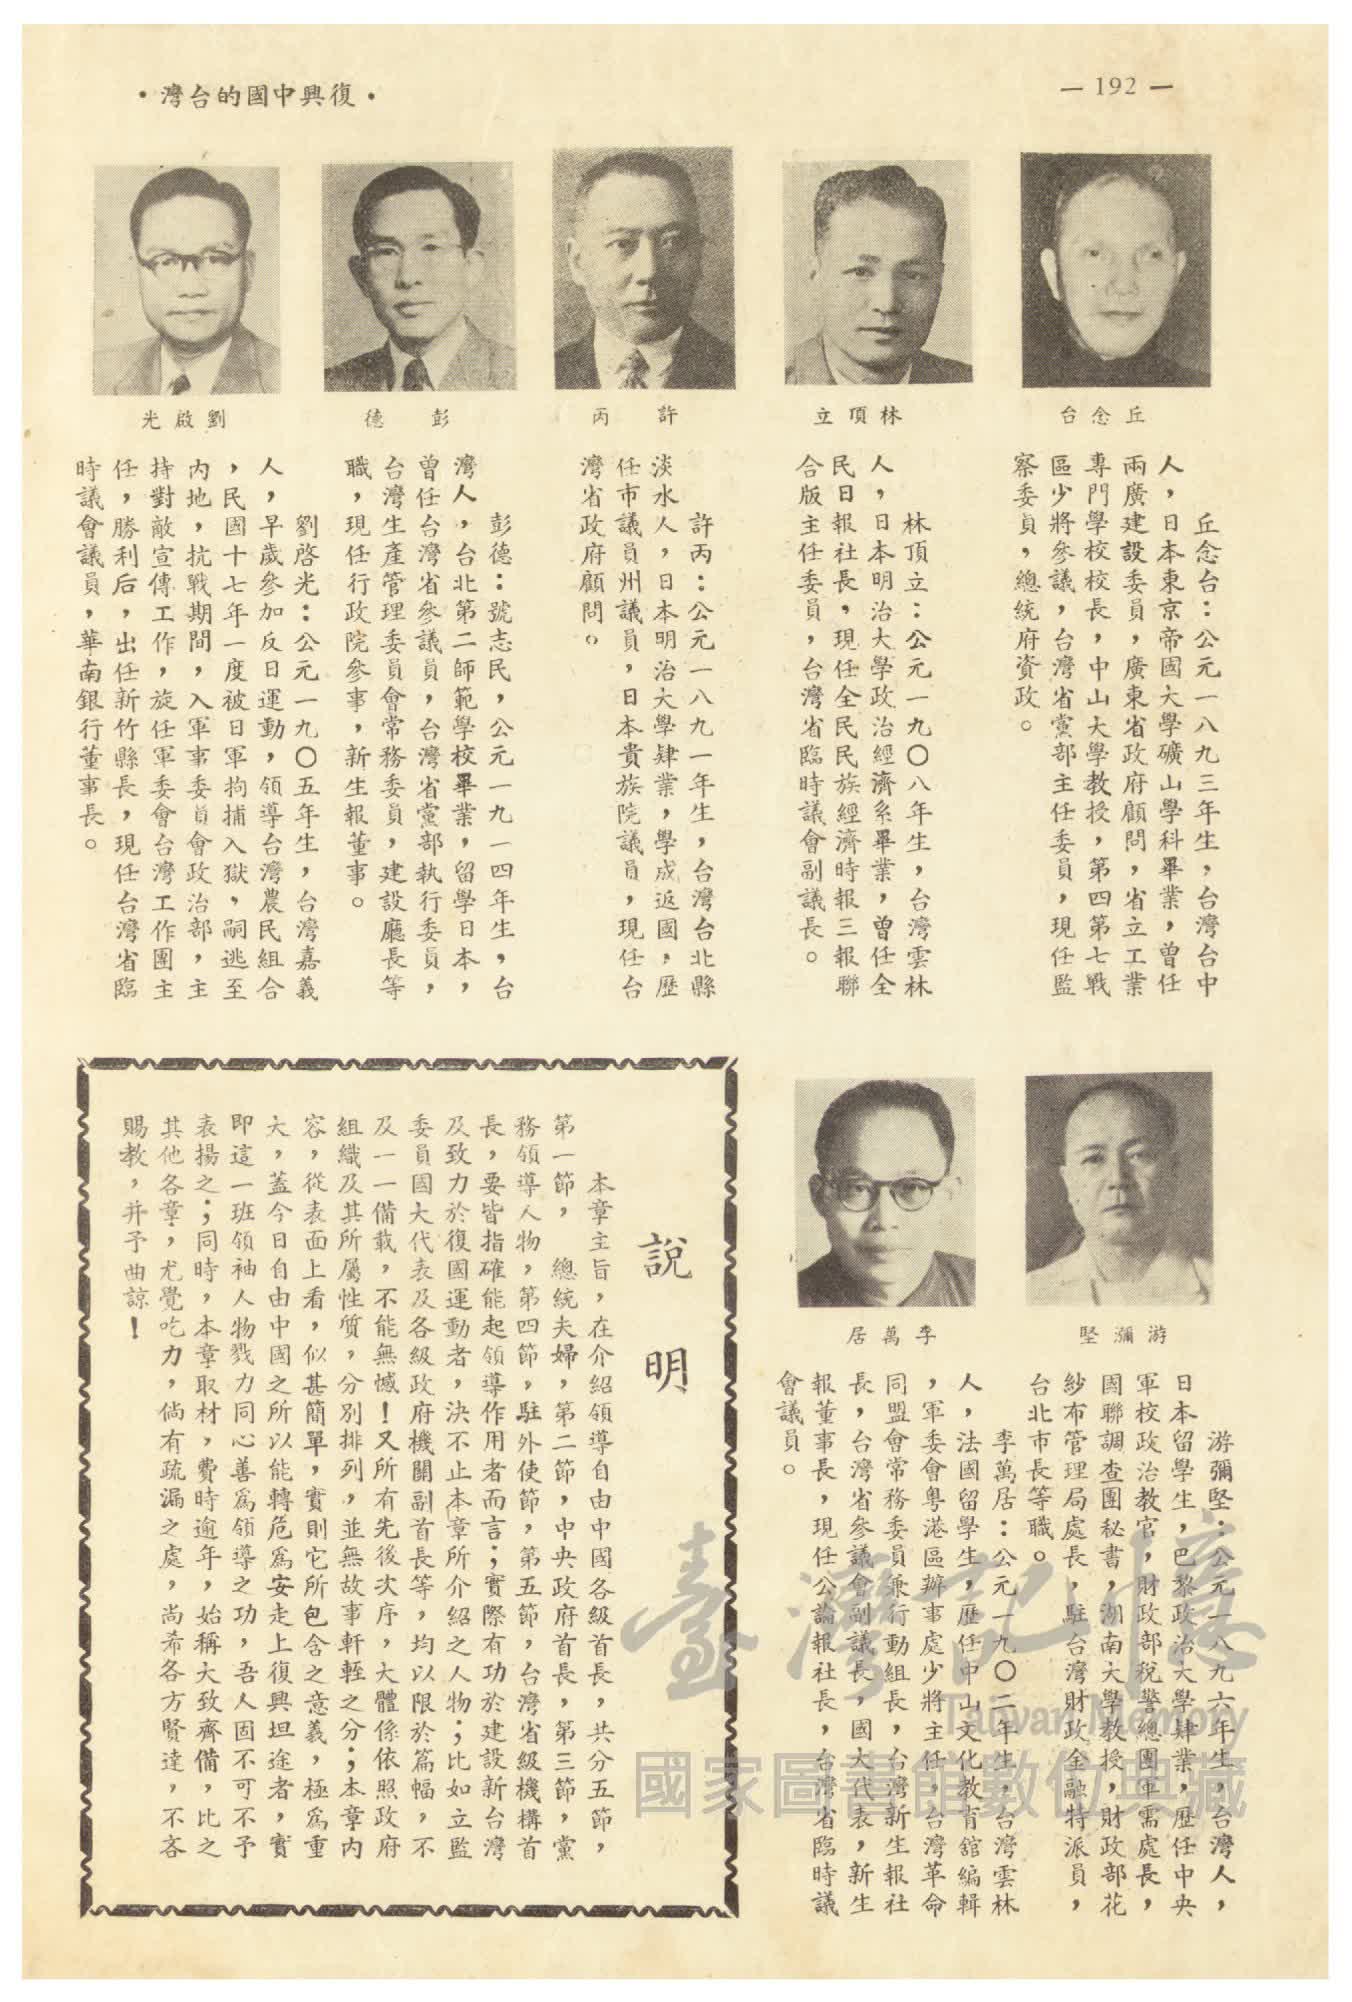 •灣台的國中興復•
— 192 —
丘念台
林頂立
許丙
彭德
劉啟光
丘念台：公元一八九三年生，台灣台中
人，日本東京帝國大學礦山學科畢業，曾任
兩廣建設委員，廣東省政府顧問，省立工業
專門學校校長，中山大學教授，第四第七戰
區少將參議，台灣省黨部主任委員，現任監
察委員，總統府資政。
林頂立：公元一九〇八年生，台灣雲林
人，日本明治大學政治經濟系畢業，曾任全
民日報社長，現任全民民族經濟時報三報聯
合版主任委員，台灣省臨時議會副議長。
許丙：公元一八九一年生，台灣台北縣
淡水人，日本明治大學肄業，學成返國，歷
任市議員州議員，日本貴族院議員，現任台
灣省政府顧問。
彭德：號志民，公元一九一四年生，台
灣人，台北第二師範學校畢業，留學日本，
曾任台灣省參議員，台灣省黨部執行委員，
台灣生產管理委員會常務委員，建設廳長等
職，現任行政院參事，新生報董事。
劉啓光：公元一九〇五年生，台灣嘉義
人，早歲參加反日運動，領導台灣農民組合
，民國十七年一度被日軍拘捕入獄，嗣逃至
內地，抗戰期間，入軍事委員會政治部，主
持對敵宣傳工作，旋任軍委會台灣工作團主
任，勝利后，出任新竹縣長，現任台灣省臨
時議會議員，華南銀行董事長。
游彌堅
李萬居
游彌堅：公元一八九六年生，台灣人，
日本留學生，巴黎政治大學肄業，歷任中央
軍校政治教官，財政部稅警總團軍需處長，
國聯調查團秘書，湖南大學教授，財政部花
紗布管理局處長，駐台灣財政金融特派員，
台北市長等職。
李萬居：公元一九〇二年生，台灣雲林
人，法國留學生，歷任中山文化教育舘編輯
，軍委會粵港區辦事處少將主任，台灣革命
同盟會常務委員兼行動組長，台灣新生報社
長，台灣省參議會副議長，國大代表，新生
報董事長，現任公論報社長，台灣省臨時議
會議員。
說明
本章主旨，在介紹領導自由中國各級首長，共分五節，
第一節，總統夫婦，第二節，中央政府首長，第三節，黨
務領導人物，第四節，駐外使節，第五節，台灣省級機構首
長，要皆指確能起領導作用者而言；實際有功於建設新台灣
及致力於復國運動者，決不止本章所介紹之人物；比如立監
委員國大代表及各級政府機關副首長等，均以限於篇幅，不
及一一備載，不能無憾！又所有先後次序，大體係依照政府
組織及其所屬性質，分別排列，並無故事軒輊之分；本章內
容，從表面上看，似甚簡單，實則它所包含之意義，極爲重
大，蓋今日自由中國之所以能轉危爲安走上復興坦途者，實
即這一班領袖人物戮力同心善爲領導之功，吾人固不可不予
表揚之；同時，本章取材，費時逾年，始稱大致齊備，比之
其他各章，尤覺吃力，倘有疏漏之處，尚希各方賢達，不吝
賜教，并予曲諒！
臺灣記憶
Taiwan Memory
國家圖書館數位典藏